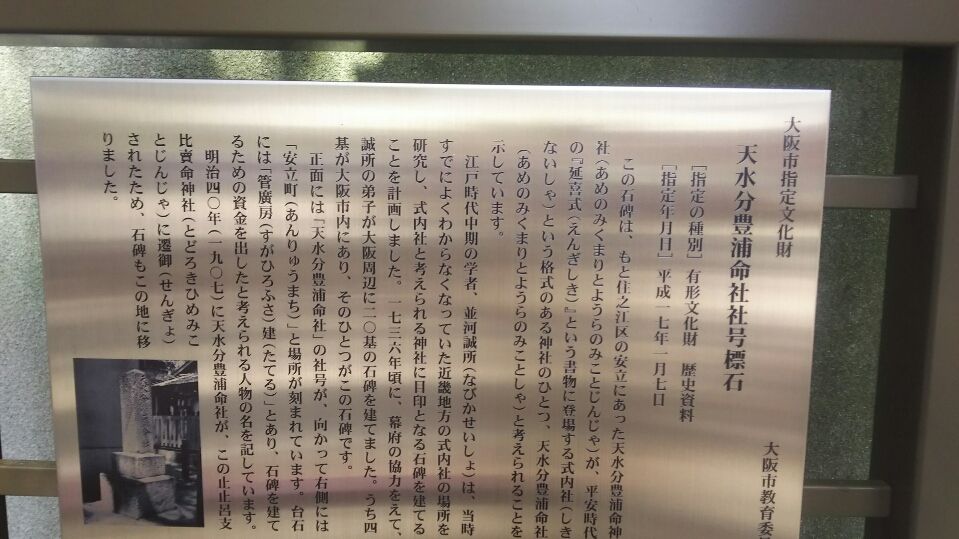 大阪市指定文化財
天水分豊浦命社社号標石
［指定の種別］ 有形文化財 歴史資料
［指定年月日］ 平成一七年一月七日
大阪市教育委
この石碑は、もと住之江区の安立にあった天水分豊浦命神
社（あめのみくまりとようらのみことじんじゃ）が、平安時代
の『延喜式（えんぎしき）』という書物に登場する式内社（しき
ないしゃ）という格式のある神社のひとつ、天水分豊浦命社
（あめのみくまりとようらのみことしゃ）と考えられることを
示しています。
江戸時代中期の学者、並河誠所（なびかせいしょ）は、当時
すでによくわからなくなっていた近畿地方の式内社の場所を
研究し、式内社と考えられる神社に目印となる石碑を建てる
ことを計画しました。一七三六年頃に、幕府の協力をえて、
誠所の弟子が大阪周辺に二〇基の石碑を建てました。うち四
基が大阪市内にあり、そのひとつがこの石碑です。
正面には「天水分豊浦命社」の社号が、向かって右側には
「安立町（あんりゅうまち）」と場所が刻まれています。台石
には「管廣房（すがひろふさ）建（たてる）」とあり、石碑を建て
るための資金を出したと考えられる人物の名を記しています。
明治四〇年（一九〇七）に天水分豊浦命社が、この止止呂支
比賣命神社（とどろきひめみこ
とじんじゃ）に遷御（せんぎょ）
されたため、石碑もこの地に移
りました。